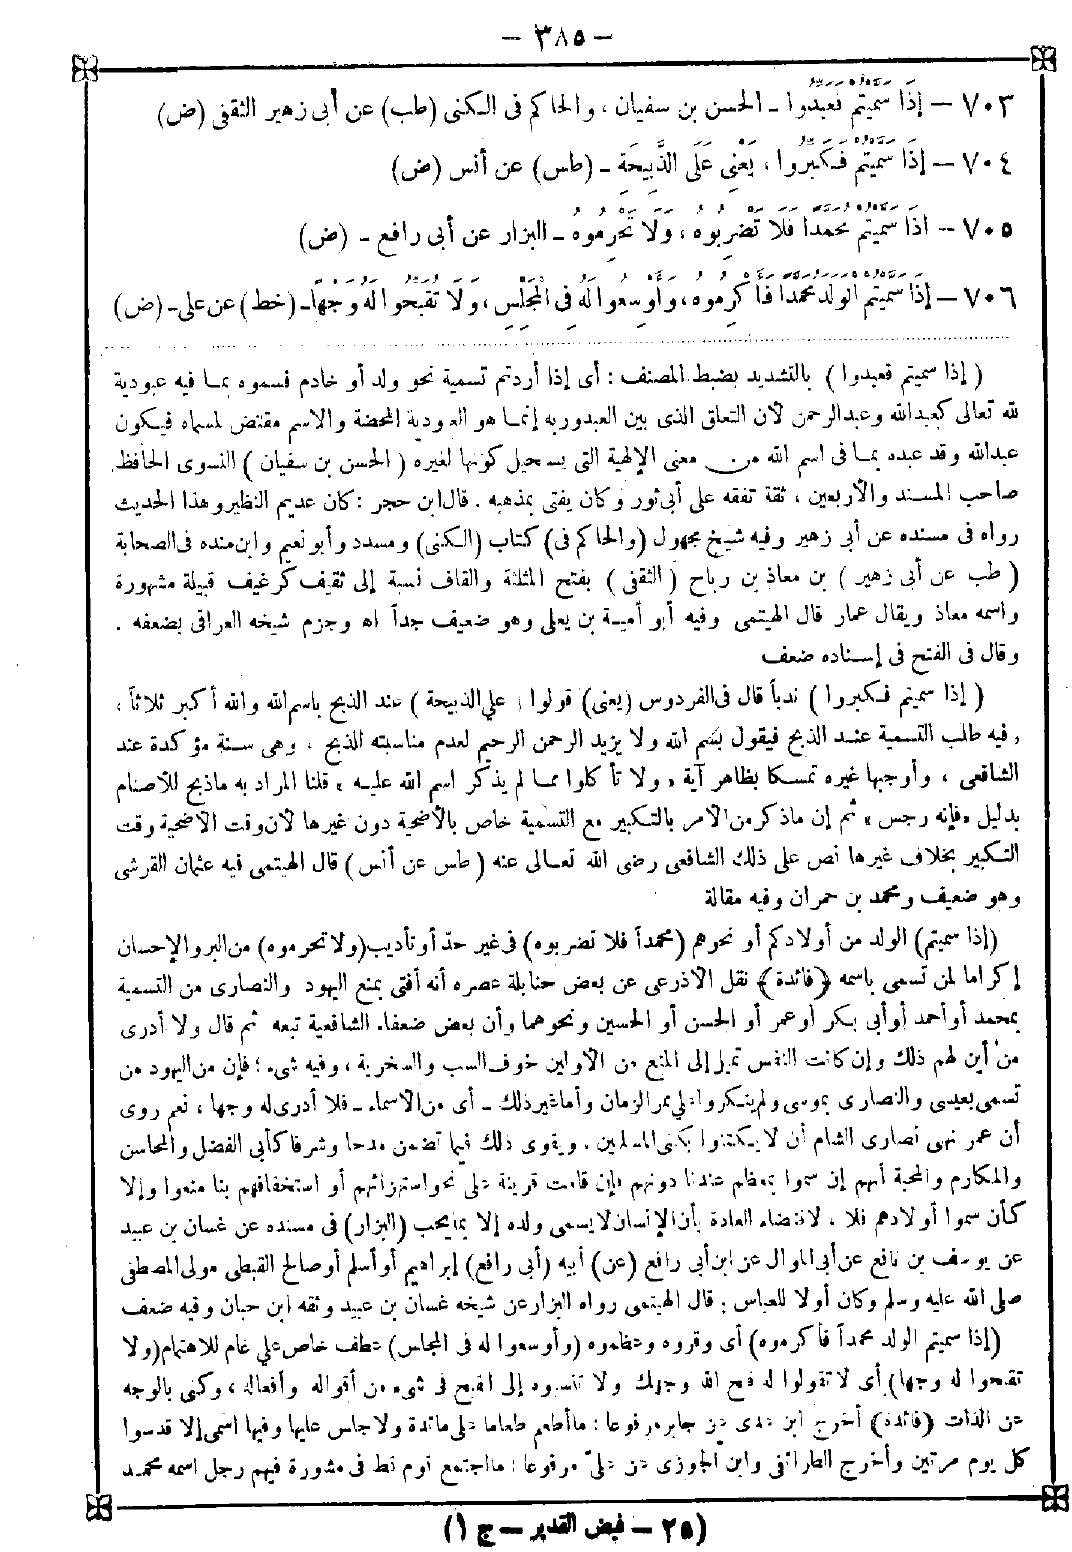 — ٣٨٥ —
٧٠٣ — إِذَا سَمَّيْتُمْ فَعَبِّدُوا - الحسن بن سفيان ، والحاكم فى الكنى (طب) عن أبى زهير الثقفى (ض)
٧٠٤ — إِذَا سَمَّيْتُمْ فَكَبِّرُوا ، يَعْنِى عَلَى الذَّبِيحَةِ - (طس) عن أنس (ض)
٧٠٥ — اذَا سَمَّيْتُمْ مُحَمَّدًا فَلَا تَضْرِبُوهُ ، وَلَا تَحْرِمُوهُ - البزار عن أبى رافع - (ض)
٧٠٦ — إِذَا سَمَّيْتُمُ الوَلَدَ مُحَمَّدًا فَأَكْرِمُوهُ ، وَأَوْسِعُوا لَهُ فِى الْمَجْلِسِ ، وَلَا تُقَبِّحُوا لَهُ وَجْهًا - (خط) عن على - (ض)
( إذا سميتم فعبدوا ) بالتشديد بضبط المصنف : أى إذا أردتم تسمية نحو ولد أو خادم فسموه بما فيه عبودية
لله تعالى كعبدالله وعبدالرحمن لأن التعلق الذى بين العبدوربه إنما هو العبودية المحضة والاسم مقتض لمسماه فيكون
عبدالله وقد عبده بما فى اسم الله من معنى الإلهية التى يستحيل كونها لغيره ( الحسن بن سفيان ) النسوى الحافظ
صاحب المسند والأربعين ، ثقة تفقه على أبى ثور وكان يفتى بمذهبه . قال ابن حجر : كان عديم النظير وهذا الحديث
رواه فى مسنده عن أبى زهير وفيه شيخ مجهول (والحاكم فى) كتاب (الكنى) ومسدد وأبو نعيم وابن منده فى الصحابة
( طب عن أبى زهير ) بن معاذ بن رباح ( الثقفى ) بفتح المثلثة والقاف نسبة إلى ثقيف كرغيف قبيلة مشهورة
واسمه معاذ ويقال عمار قال الهيتمى وفيه أبو أمية بن يعلى وهو ضعيف جداً اه وجزم شيخه العراقى بضعفه .
وقال فى الفتح فى إسناده ضعف
( إذا سميتم فكبروا ) ندباً قال فى الفردوس (يعنى) قولوا ( على الذبيحة ) عند الذبح باسم الله والله أكبر ثلاثاً ،
وفيه طلب التسمية عند الذبح فيقول بسم الله ولا يزيد الرحمن الرحيم لعدم مناسبته الذبح ، وهى سنة مؤكدة عند
الشافعى ، وأوجبها غيره تمسكا بظاهر آية « ولا تأكلوا مما لم يذكر اسم الله عليه » قلنا المراد به ماذبح للأصنام
بدليل «فإنه رجس» ثم إن ماذكر من الأمر بالتكبير مع التسمية خاص بالأضحية دون غيرها لأن وقت الأضحية وقت
التكبير بخلاف غيرها نص على ذلك الشافعى رضى الله تعالى عنه ( طس عن أنس ) قال الهيتمى فيه عثمان القرشى
وهو ضعيف ومحمد بن حمران وفيه مقالة
(إذا سميتم) الولد من أولادكم أو نحوهم (محمداً فلا تضربوه) فى غير حدّ أو تأديب (ولا تحرموه) من البر والإحسان
إكراما لمن تسمى باسمه (فائدة) نقل الأذرعى عن بعض حنابلة عصره أنه أفتى بمنع اليهود والنصارى من التسمية
بمحمد أو أحمد أو أبى بكر أو عمر أو الحسن أو الحسين ونحوهما وأن بعض ضعفاء الشافعية تبعه ثم قال ولا أدرى
من أين لهم ذلك وإن كانت النفس تميل إلى المنع من الأولين خوف السب والسخرية ، وفيه شىء ؛ فإن من اليهود من
تسمى بعيسى والنصارى بموسى ولم ينكروا على ممر الزمان وأما غير ذلك - أى من الأسماء - فلا أدرى له وجها ، نعم روى
أن عمر نهى نصارى الشام أن لا يكتنوا بكنى المسلمين . ويقوى ذلك فيما تضمن مدحا وشرفا كأبى الفضل والمحاسن
والمكارم والمحبة أنهم إن سموا بمعظم عندنا دونهم فإن قامت قرينة على نحو استهزائهم أو استخفافهم بنا منعوا وإلا
كأن سموا أولادهم فلا ، لاقتضاء العادة بأن الإنسان لا يسمى ولده إلا بما يحب (البزار) فى مسنده عن غسان بن عبيد
عن يوسف بن نافع عن أبى الموال عن ابن أبى رافع (عن) أبيه (أبى رافع) إبراهيم أو أسلم أو صالح القبطى مولى المصطفى
صلى الله عليه وسلم وكان أولا للعباس : قال الهيتمى رواه البزار عن شيخه غسان بن عبيد وثقه ابن حبان وفيه ضعف
(إذا سميتم الولد محمداً فأكرموه) أى وقروه وعظموه (وأوسعوا له فى المجلس) عطف خاص على عام للاهتمام (ولا
تقبحوا له وجها) أى لا تقولوا له قبح الله وجهك ولا تنسبوه إلى القبح فى شىء من أقواله وأفعاله ، وكنى بالوجه
عن الذات (فائدة) أخرج ابن عدى عن جابر مرفوعا : ما أطعم طعاما على مائدة ولا جلس عليها وفيها اسمى إلا قدسوا
كل يوم مرتين وأخرج الطرائفى وابن الجوزى عن علىّ مرفوعا : ما اجتمع قوم قط فى مشورة فيهم رجل اسمه محمد
(٢٥ - فيض القدير - ج ١)